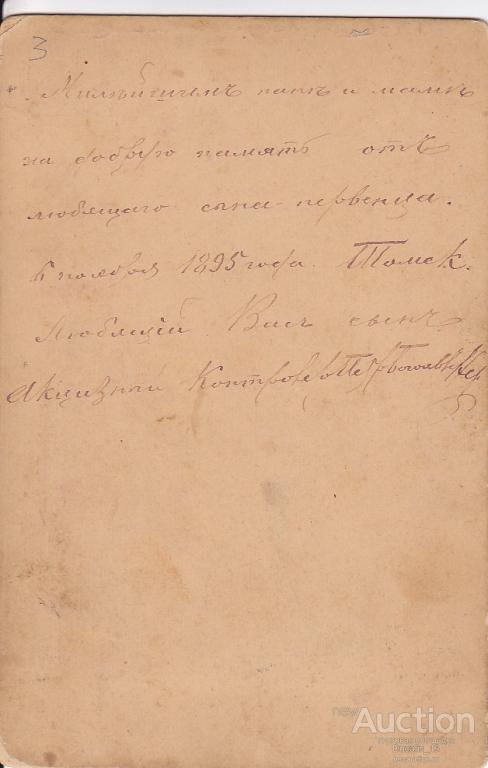 3
Милѣйшимъ папѣ и мамѣ
на добрую память отъ
любящаго сына-первенца.
6 ноября 1895 года. Томск.
Любящій Васъ сынъ
Акцизный Контролеръ
newAuction
Russia_13